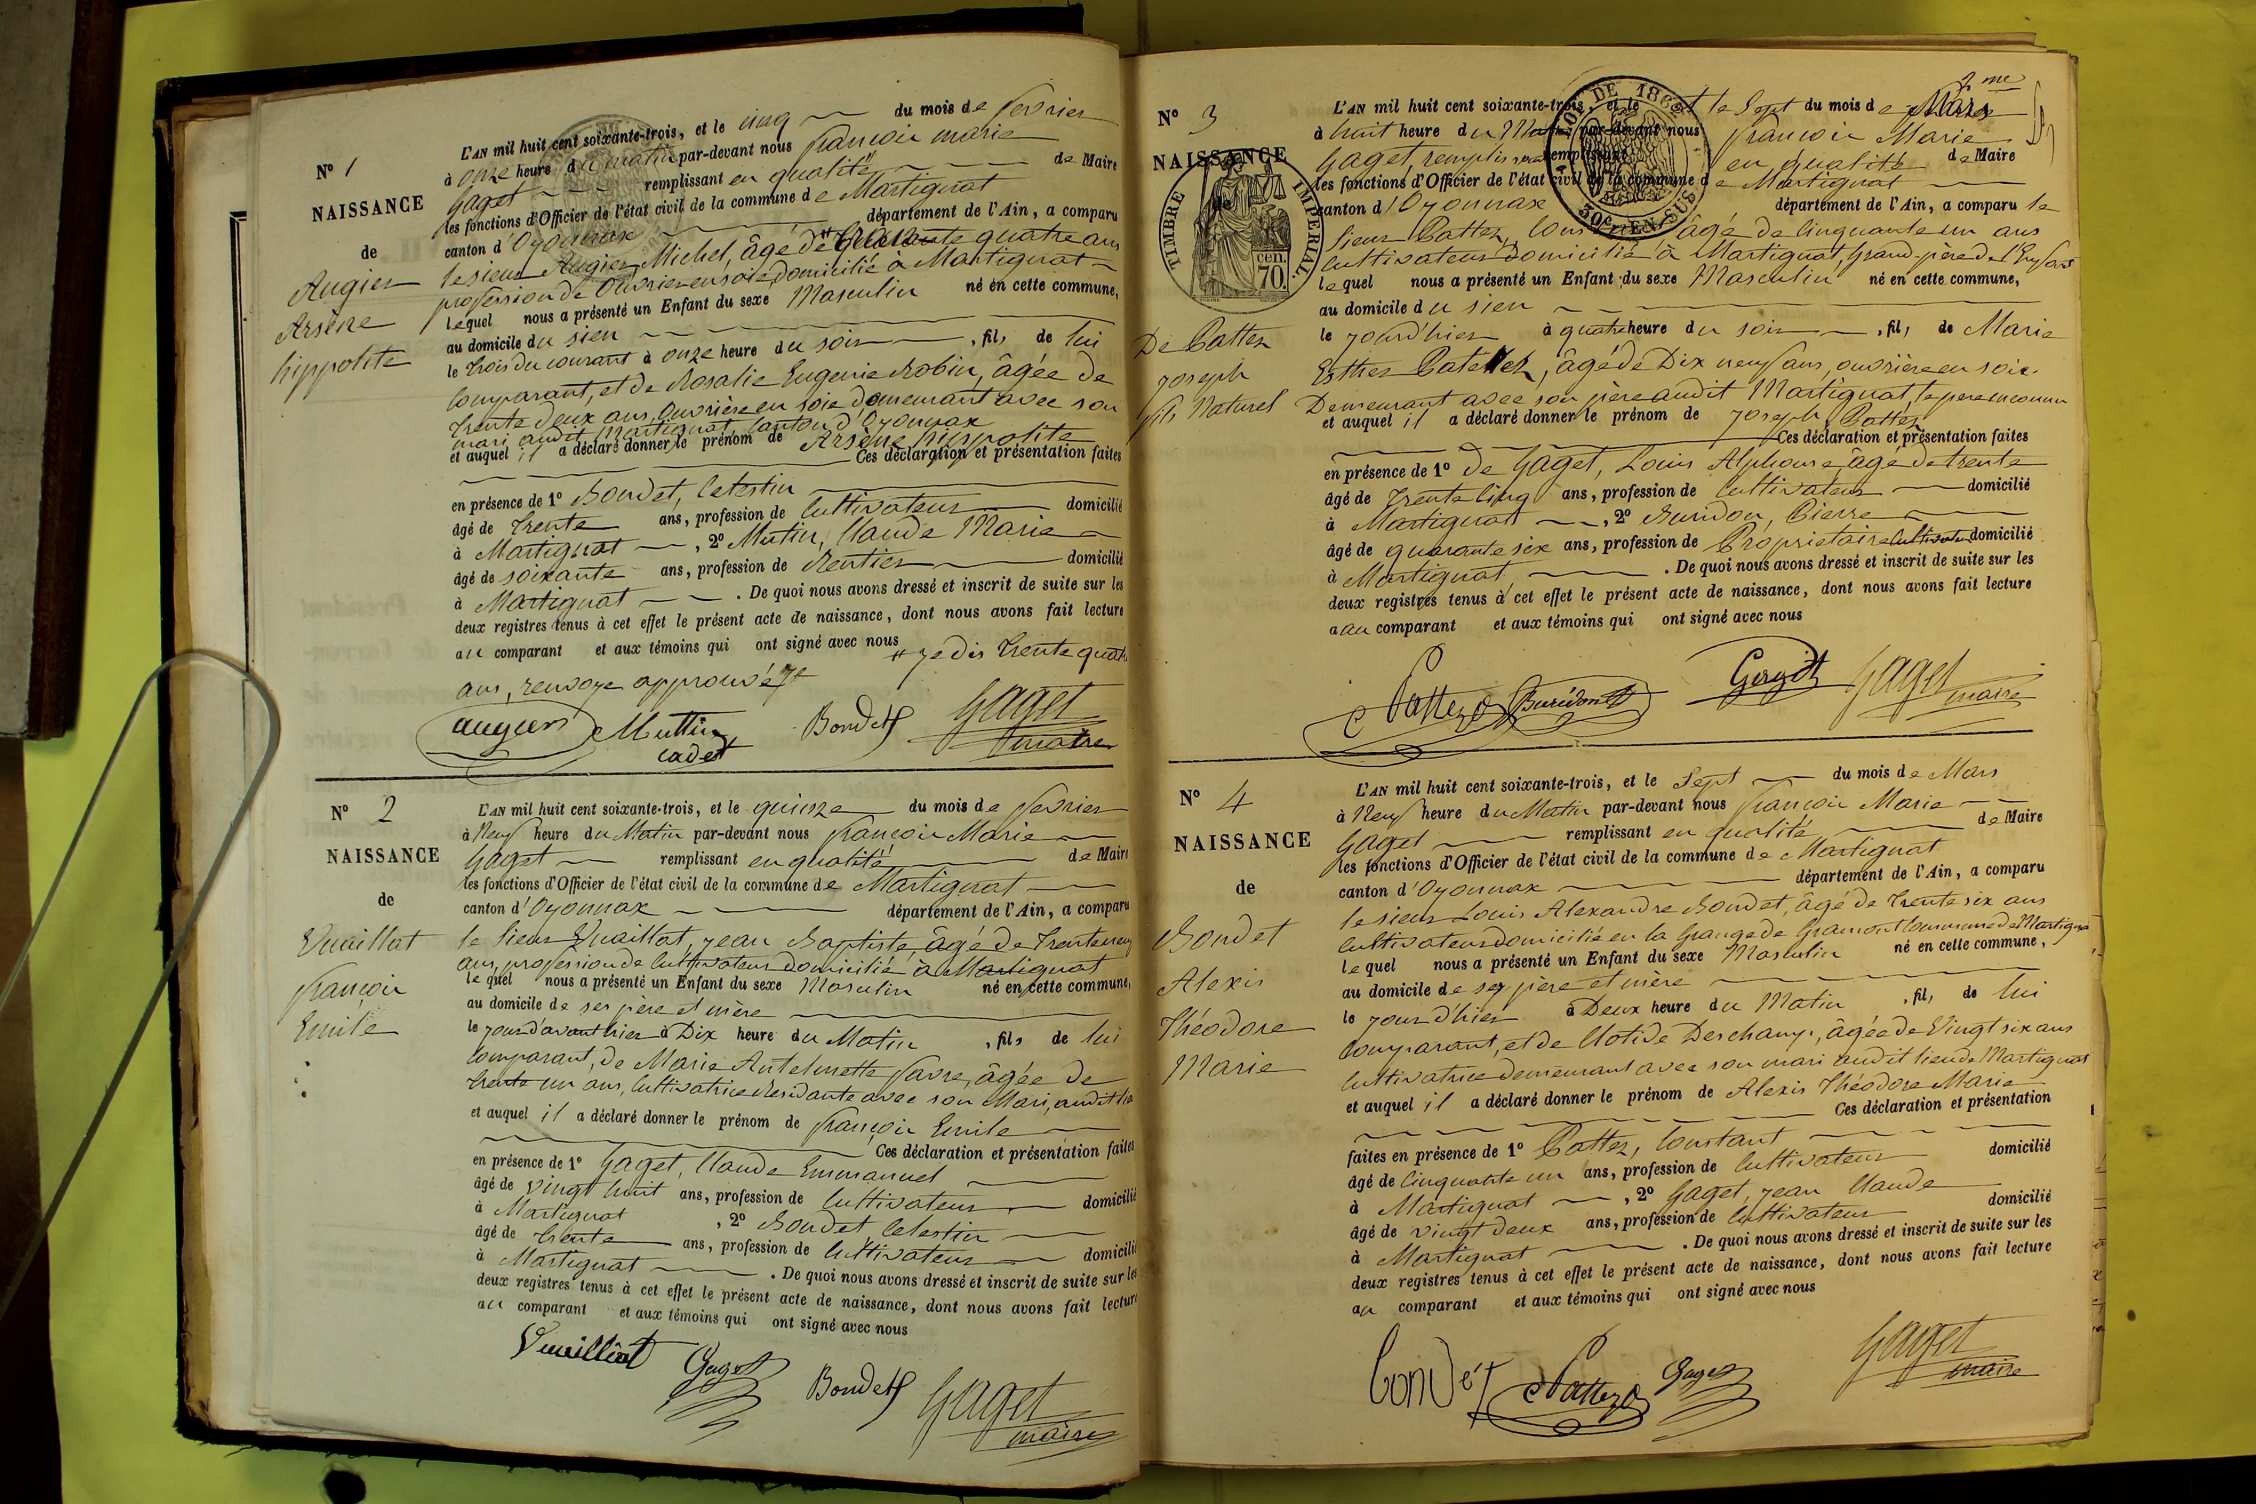 N° 1
NAISSANCE
de
Augier
Arsène
hippolite
L'AN mil huit cent soixante-trois, et le cinq du mois de fevrier
à onze heure du matin par-devant nous françois marie
Gaget remplissant en qualité de Maire
les fonctions d'Officier de l'état civil de la commune de Martignat
canton d'Oyonnax département de l'Ain, a comparu
le sieur Augier Michel, âgé de quatre ans
profession de Ouvrier en soie domicilié à Martignat
lequel nous a présenté un Enfant du sexe Masculin né en cette commune,
au domicile du sien
le trois du courant à onze heure du soir, fils de lui
comparant, et de Rosalie Eugenie Robin, âgée de
trente deux ans, Ouvrière en soie demeurant avec son
mari audit Martignat, canton d'Oyonnax
et auquel il a déclaré donner le prénom de Arsène hippolite
Ces déclaration et présentation faites
en présence de 1° Bondet, Celestin
âgé de trente ans, profession de Cultivateur domicilié
à Martignat, 2° Mutin, Claude Marie
âgé de soixante ans, profession de Rentier domicilié
à Martignat. De quoi nous avons dressé et inscrit de suite sur les
deux registres tenus à cet effet le présent acte de naissance, dont nous avons fait lecture
au comparant et aux témoins qui ont signé avec nous
je dis trente quatre
ans, renvoye approuvé
augier Muttin Bondet Gaget
cadet maire
N° 2
NAISSANCE
de
Vuaillat
françois
Emile
L'AN mil huit cent soixante-trois, et le quinze du mois de fevrier
à Neuf heure du Matin par-devant nous françois Marie
Gaget remplissant en qualité de Maire
les fonctions d'Officier de l'état civil de la commune de Martignat
canton d'Oyonnax département de l'Ain, a comparu
le sieur Vuaillat, jean Baptiste, âgé de trente neuf
ans, profession de Cultivateur domicilié à Martignat
lequel nous a présenté un Enfant du sexe Masculin né en cette commune,
au domicile de ses père et mère
le jour d'avant hier à Dix heure du Matin, fils de lui
comparant, de Marie Antelmette favre, âgée de
trente un ans, Cultivatrice Residante avec son Mari, audit lieu
et auquel il a déclaré donner le prénom de françois Emile
Ces déclaration et présentation faites
en présence de 1° Gaget, Claude Emmanuel
âgé de vingt huit ans, profession de Cultivateur domicilié
à Martignat, 2° Bondet, Celestin
âgé de trente ans, profession de Cultivateur domicilié
à Martignat. De quoi nous avons dressé et inscrit de suite sur les
deux registres tenus à cet effet le présent acte de naissance, dont nous avons fait lecture
au comparant et aux témoins qui ont signé avec nous
Vuaillat Gaget Bondet Gaget
maire
2me
N° 3
NAISSANCE
TIMBRE IMPERIAL
cen.
70.
LOI DE 1862
30c EN SUS
De Pattez
joseph
fils Naturel
L'AN mil huit cent soixante-trois, et le Sept du mois de Mars
à huit heure du Matin par-devant nous françois Marie
Gaget, remplissant en qualité de Maire
les fonctions d'Officier de l'état civil de la commune de Martignat
canton d'Oyonnax département de l'Ain, a comparu le
sieur Pattez, âgé de Cinquante un ans
Cultivateur domicilié à Martignat, Grand-père de l'Enfant
lequel nous a présenté un Enfant du sexe Masculin né en cette commune,
au domicile du sien
le jour d'hier à quatre heure du soir, fils de Marie
Esther Patellez, âgé de Dix neuf ans, ouvrière en soie
Demeurant avec son père audit Martignat, le père inconnu
et auquel il a déclaré donner le prénom de joseph Pattez
Ces déclaration et présentation faites
en présence de 1° de Gaget, Louis Alphonse, âgé de trente
âgé de trente Cinq ans, profession de Cultivateur domicilié
à Martignat, 2° Buridon, Pierre
âgé de quarante six ans, profession de Proprietaire Cultivateur domicilié
à Martignat. De quoi nous avons dressé et inscrit de suite sur les
deux registres tenus à cet effet le présent acte de naissance, dont nous avons fait lecture
a au comparant et aux témoins qui ont signé avec nous
C Pattez Buridon Gaget Gaget
maire
N° 4
NAISSANCE
de
Bondet
Alexis
Théodore
Marie
L'AN mil huit cent soixante-trois, et le Sept du mois de Mars
à Neuf heure du Matin par-devant nous françois Marie
Gaget remplissant en qualité de Maire
les fonctions d'Officier de l'état civil de la commune de Martignat
canton d'Oyonnax département de l'Ain, a comparu
le sieur Louis Alexandre Bondet, âgé de trente six ans
Cultivateur domicilié en la Grange de Gramont Commune de Martignat
lequel nous a présenté un Enfant du sexe Masculin né en cette commune,
au domicile de ses père et mère
le jour d'hier à Deux heure du Matin, fils de lui
comparant, et de Clotide Deschamp, âgée de Vingt six ans
Cultivatrice demeurant avec son mari audit lieu de Martignat
et auquel il a déclaré donner le prénom de Alexis Théodore Marie
Ces déclaration et présentation
faites en présence de 1° Pattez, Constant
âgé de Cinquante un ans, profession de Cultivateur domicilié
à Martignat, 2° Gaget, jean Claude
âgé de vingt deux ans, profession de Cultivateur domicilié
à Martignat. De quoi nous avons dressé et inscrit de suite sur les
deux registres tenus à cet effet le présent acte de naissance, dont nous avons fait lecture
au comparant et aux témoins qui ont signé avec nous
bondét C Pattez Gaget Gaget
maire